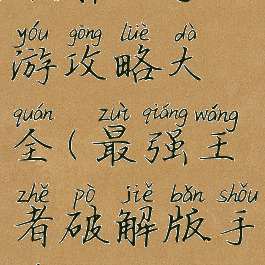 yóu gōng lüè dà
游攻略大
quán zuì qiáng wáng
全(最强王
zhě pò jiě bǎn shǒu
者破解版手